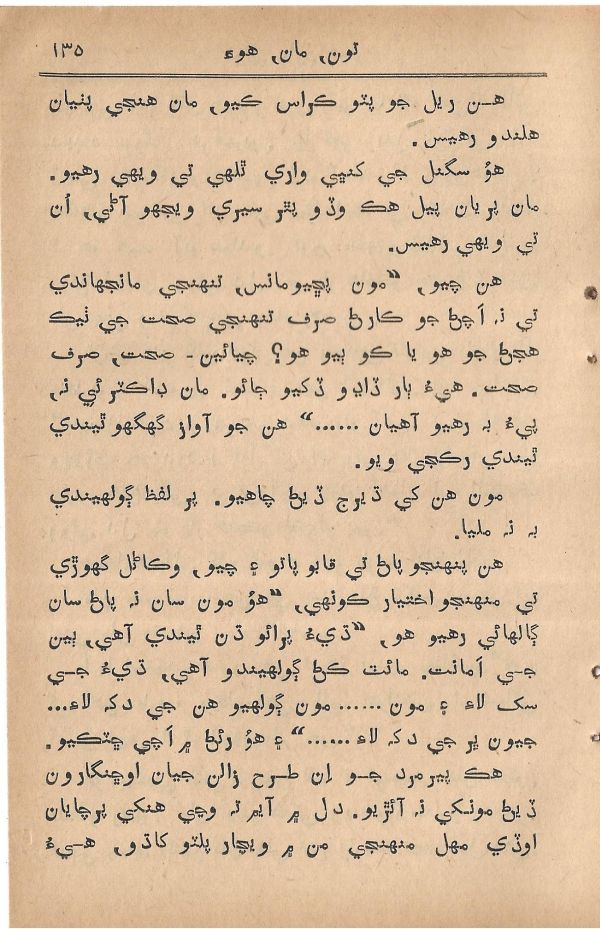 تون، مان، هوءَ ١٣٥
هـن ريل جو پٽو ڪراس ڪيو، مان هنجي پٺيان
هلندو رهيس.
هوُ سگنل جي کنڀي واري ٿلهي تي ويهي رهيو.
مان پريان پيل هڪ وڏو پٿر سيري ويجهو آڻي، اُن
تي ويهي رهيس.
هن چيو، ”مون پڇيومانس، تنهنجي مانجهاندي
تي نہ اَچڻ جو ڪارڻ صرف تنهنجي صحت جي ٺيڪ
هجڻ جو هو يا ڪو ٻيو هو؟ چيائين - صحت، صرف
صحت. هيءُ ٻار ڏاڍو ڏکيو ڄائو. مان ڊاڪٽر ئي نہ،
پيءُ بہ رهيو آهيان ......“ هن جو آواز گهگهو ٿيندي
ٿيندي رڪجي ويو.
مون هن کي ڌيرج ڏيڻ چاهيو. پر لفظ ڳولهيندي
بہ نہ مليا.
هن پنهنجو پاڻ تي قابو پاتو ۽ چيو، وڪاڻل گهوڙي
تي منهنجو اختيار ڪونهي، ”هوُ مون سان نہ پاڻ سان
ڳالهائي رهيو هو، ”ڌيءُ پرائو ڌن ٿيندي آهي، ٻين
جـي اَمانت. مائٽ ڪڻ ڳولهيندو آهي، ڌيءُ جـي
سک لاءِ ۽ مون ...... مون ڳولهيو هن جي دک لاءِ...
جيون ڀر جي دک لاءِ ......“ ۽ هوُ رئڻ ۾ اَچي ڇٽڪيو.
هڪ پيرمرد جـو اِن طـرح زالن جيان اوڇنگارون
ڏيڻ مونکي نہ آئڙيو. دل ۾ آيم تہ وڃي هنکي پرچايان
اوڏي مهل منهنجي من ۾ ويچار پلٽو کاڌو، هـيءُ